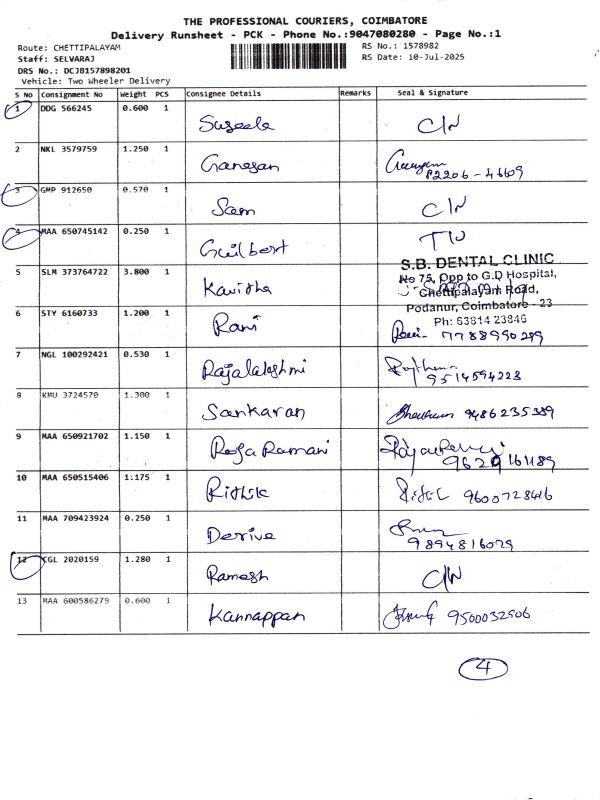 THE PROFESSIONAL COURIERS, COIMBATORE
Delivery Runsheet - PCK - Phone No.:9047080280 - Page No.:1
Route: CHETTIPALAYAM
RS No.: 1578982
Staff: SELVARAJ
RS Date: 10-Jul-2025
DRS No.: DCJB157898201
Vehicle: Two Wheeler Delivery
S No Consignment No Weight PCS Consignee Details Remarks Seal & Signature
1 DDG 566245 0.600 1 Suseela C/N
2 NKL 3579759 1.250 1 Ganesan
P2206-46609
3 GMP 912650 0.570 1 Sam C/N
4 MAA 650745142 0.250 1 Guilbert
S.B. DENTAL CLINIC
5 SLM 373764722 3.800 1 Kavitha No 75, Opp to G.D Hospital,
Chettipalayam Road,
Podanur, Coimbatore - 23
Ph: 63814 23846
6 STY 6160733 1.200 1 Rani 7788990299
7 NGL 100292421 0.530 1 Rajalakshmi
9514594223
8 KMU 3724570 1.300 1 Sankaran 9486235389
9 MAA 650921702 1.150 1 Roja Ramani
9629161189
10 MAA 650515406 1.175 1 Rithik 9600728416
11 MAA 709423924 0.250 1
9894816029
12 CGL 2020159 1.280 1 Ramesh C/N
13 MAA 600586279 0.600 1 Kannappan 9500032906
4